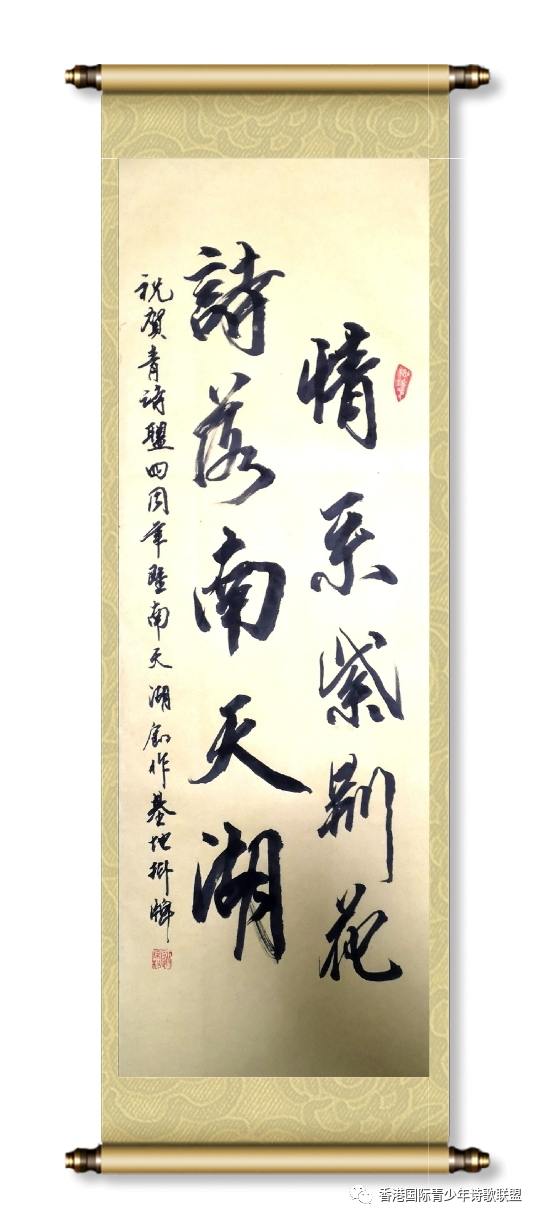 情系紫荆花
詩落南天湖
祝贺青诗盟四周年暨南天湖创作基地掛牌
香港国际青少年诗歌联盟